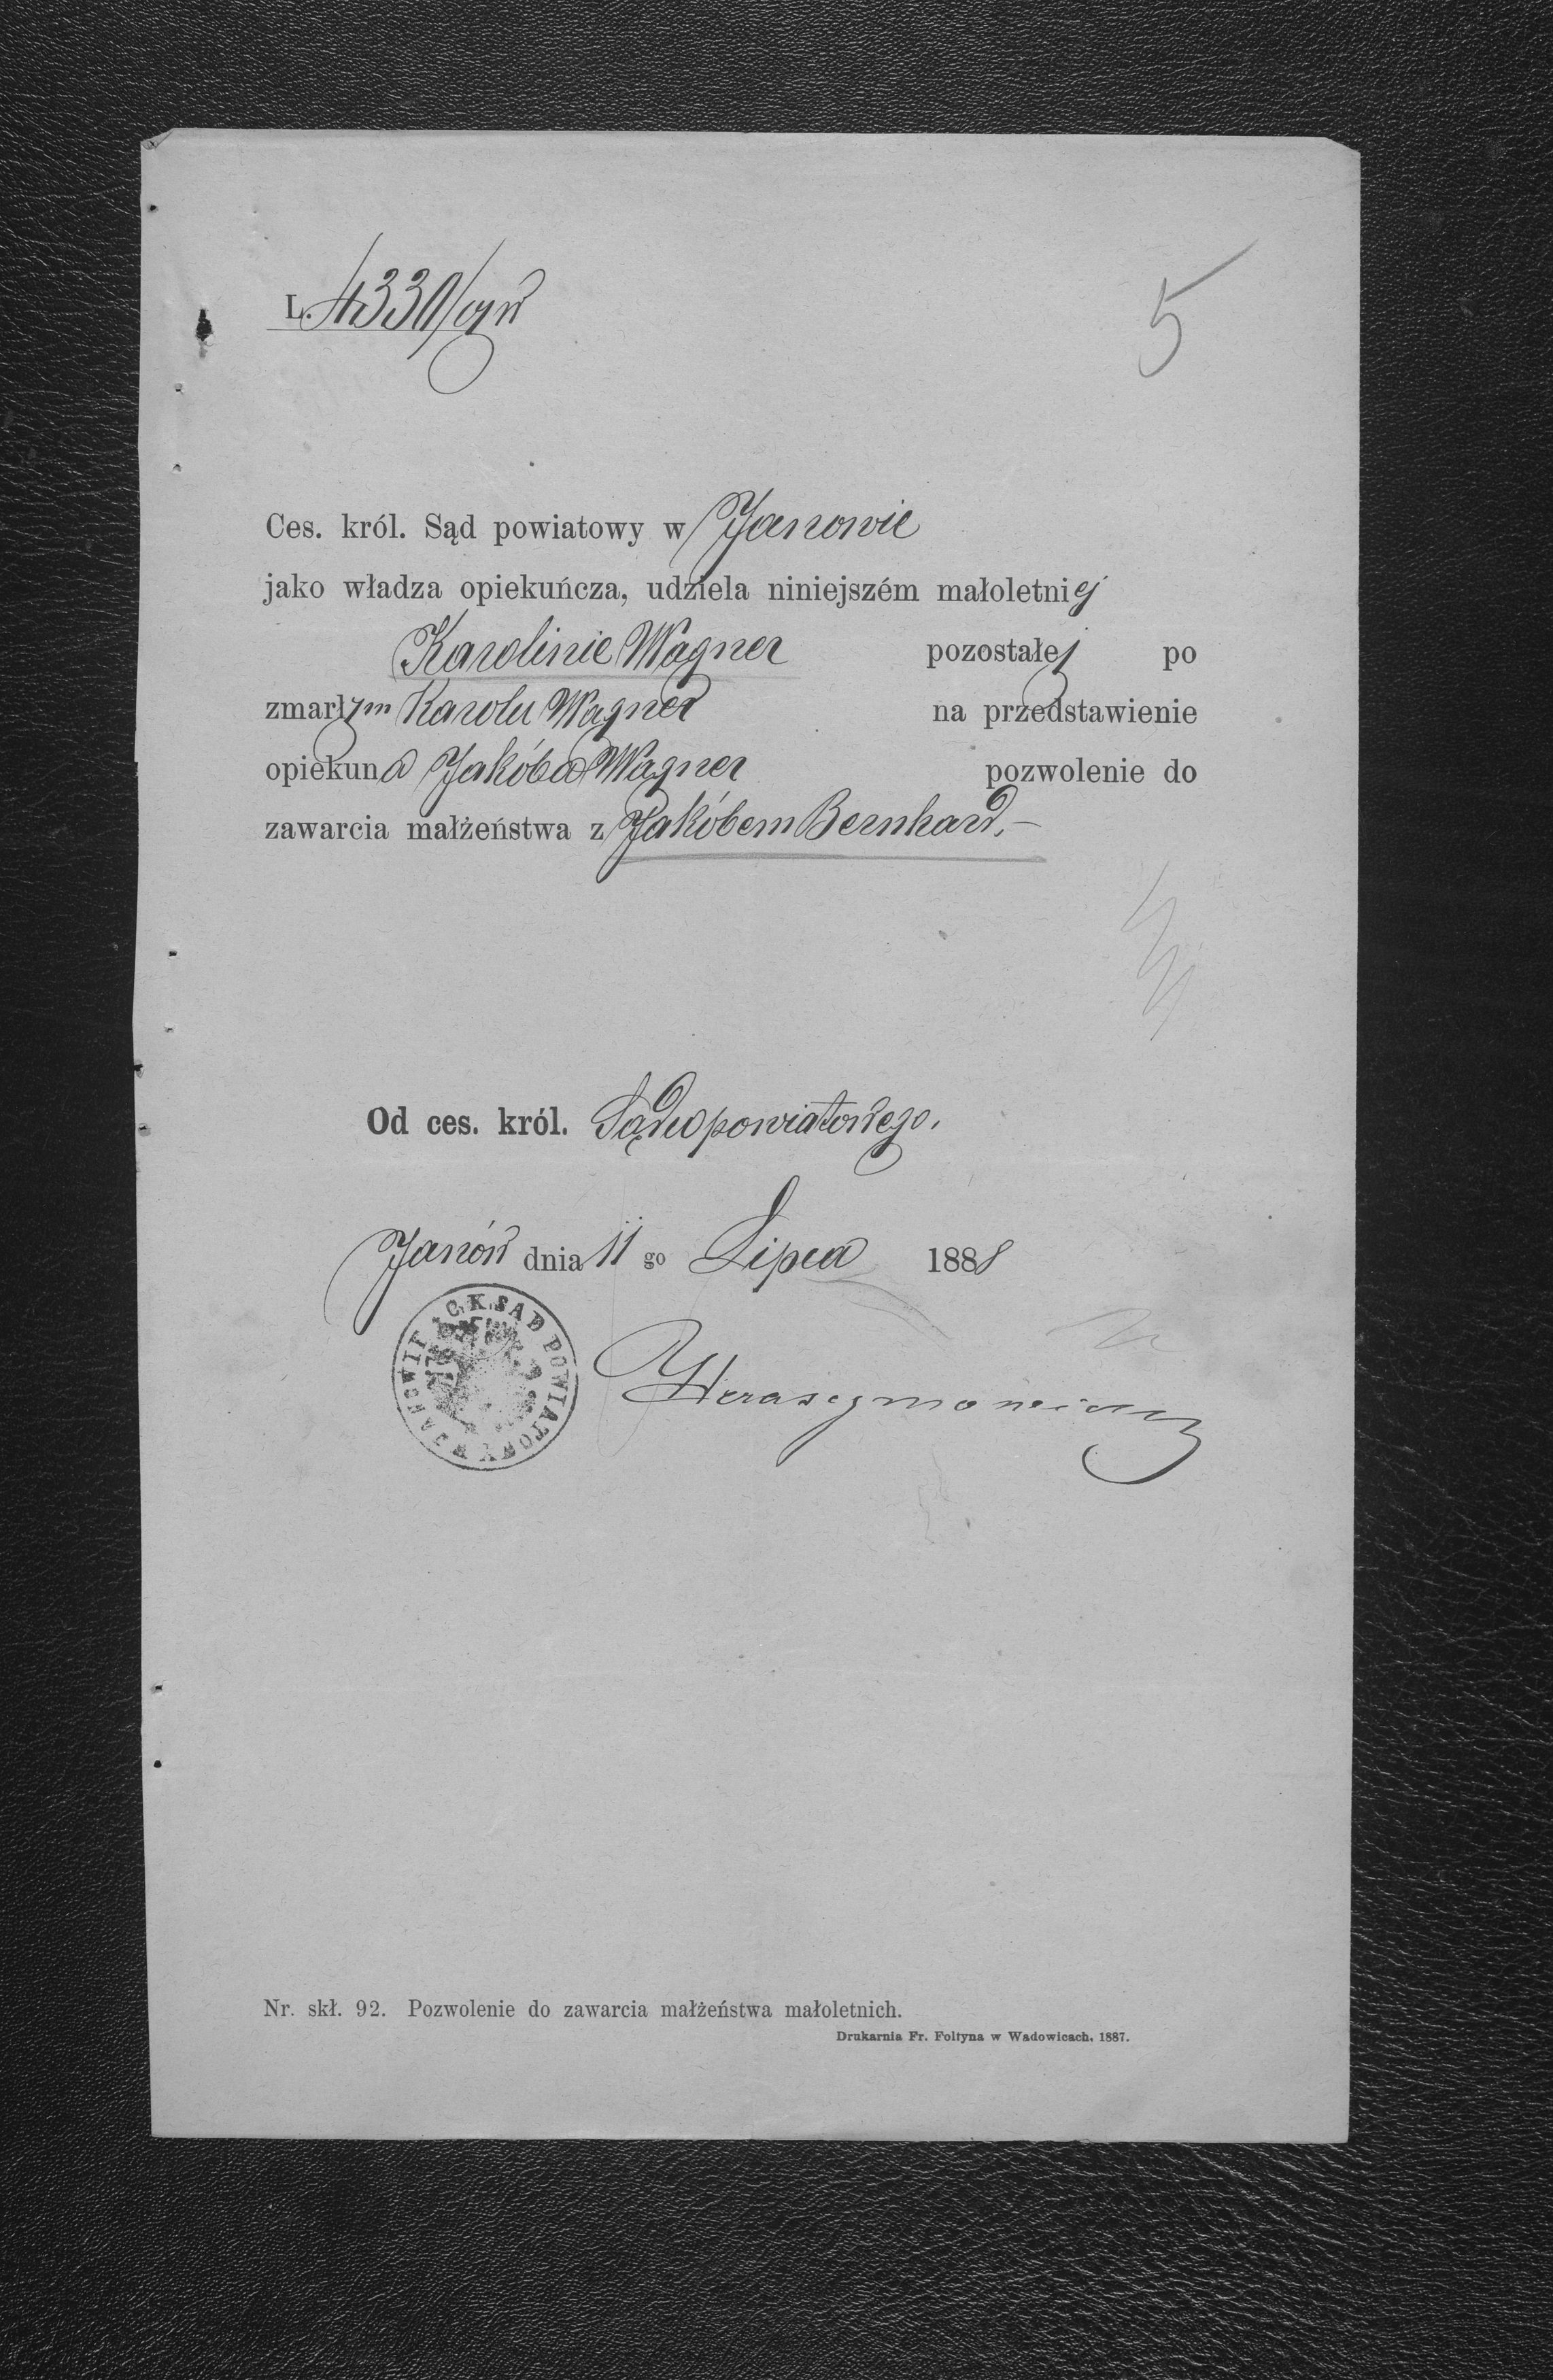 L. 4330/cyw
5
Ces. król. Sąd powiatowy w Janowie
jako władza opiekuńcza, udziela niniejszém małoletniej
Karolinie Wagner pozostałej po
zmarłym Karolu Wagner na przedstawienie
opiekuna Jakóba Wagner pozwolenie do
zawarcia małżeństwa z Jakóbem Bernhard. —
Od ces. król. Sądu powiatowego.
Janów dnia 11 go Lipca 1888
C. K. SĄD POWIATOWY W JANOWIE
Nr. skł. 92. Pozwolenie do zawarcia małżeństwa małoletnich.
Drukarnia Fr. Foltyna w Wadowicach. 1887.